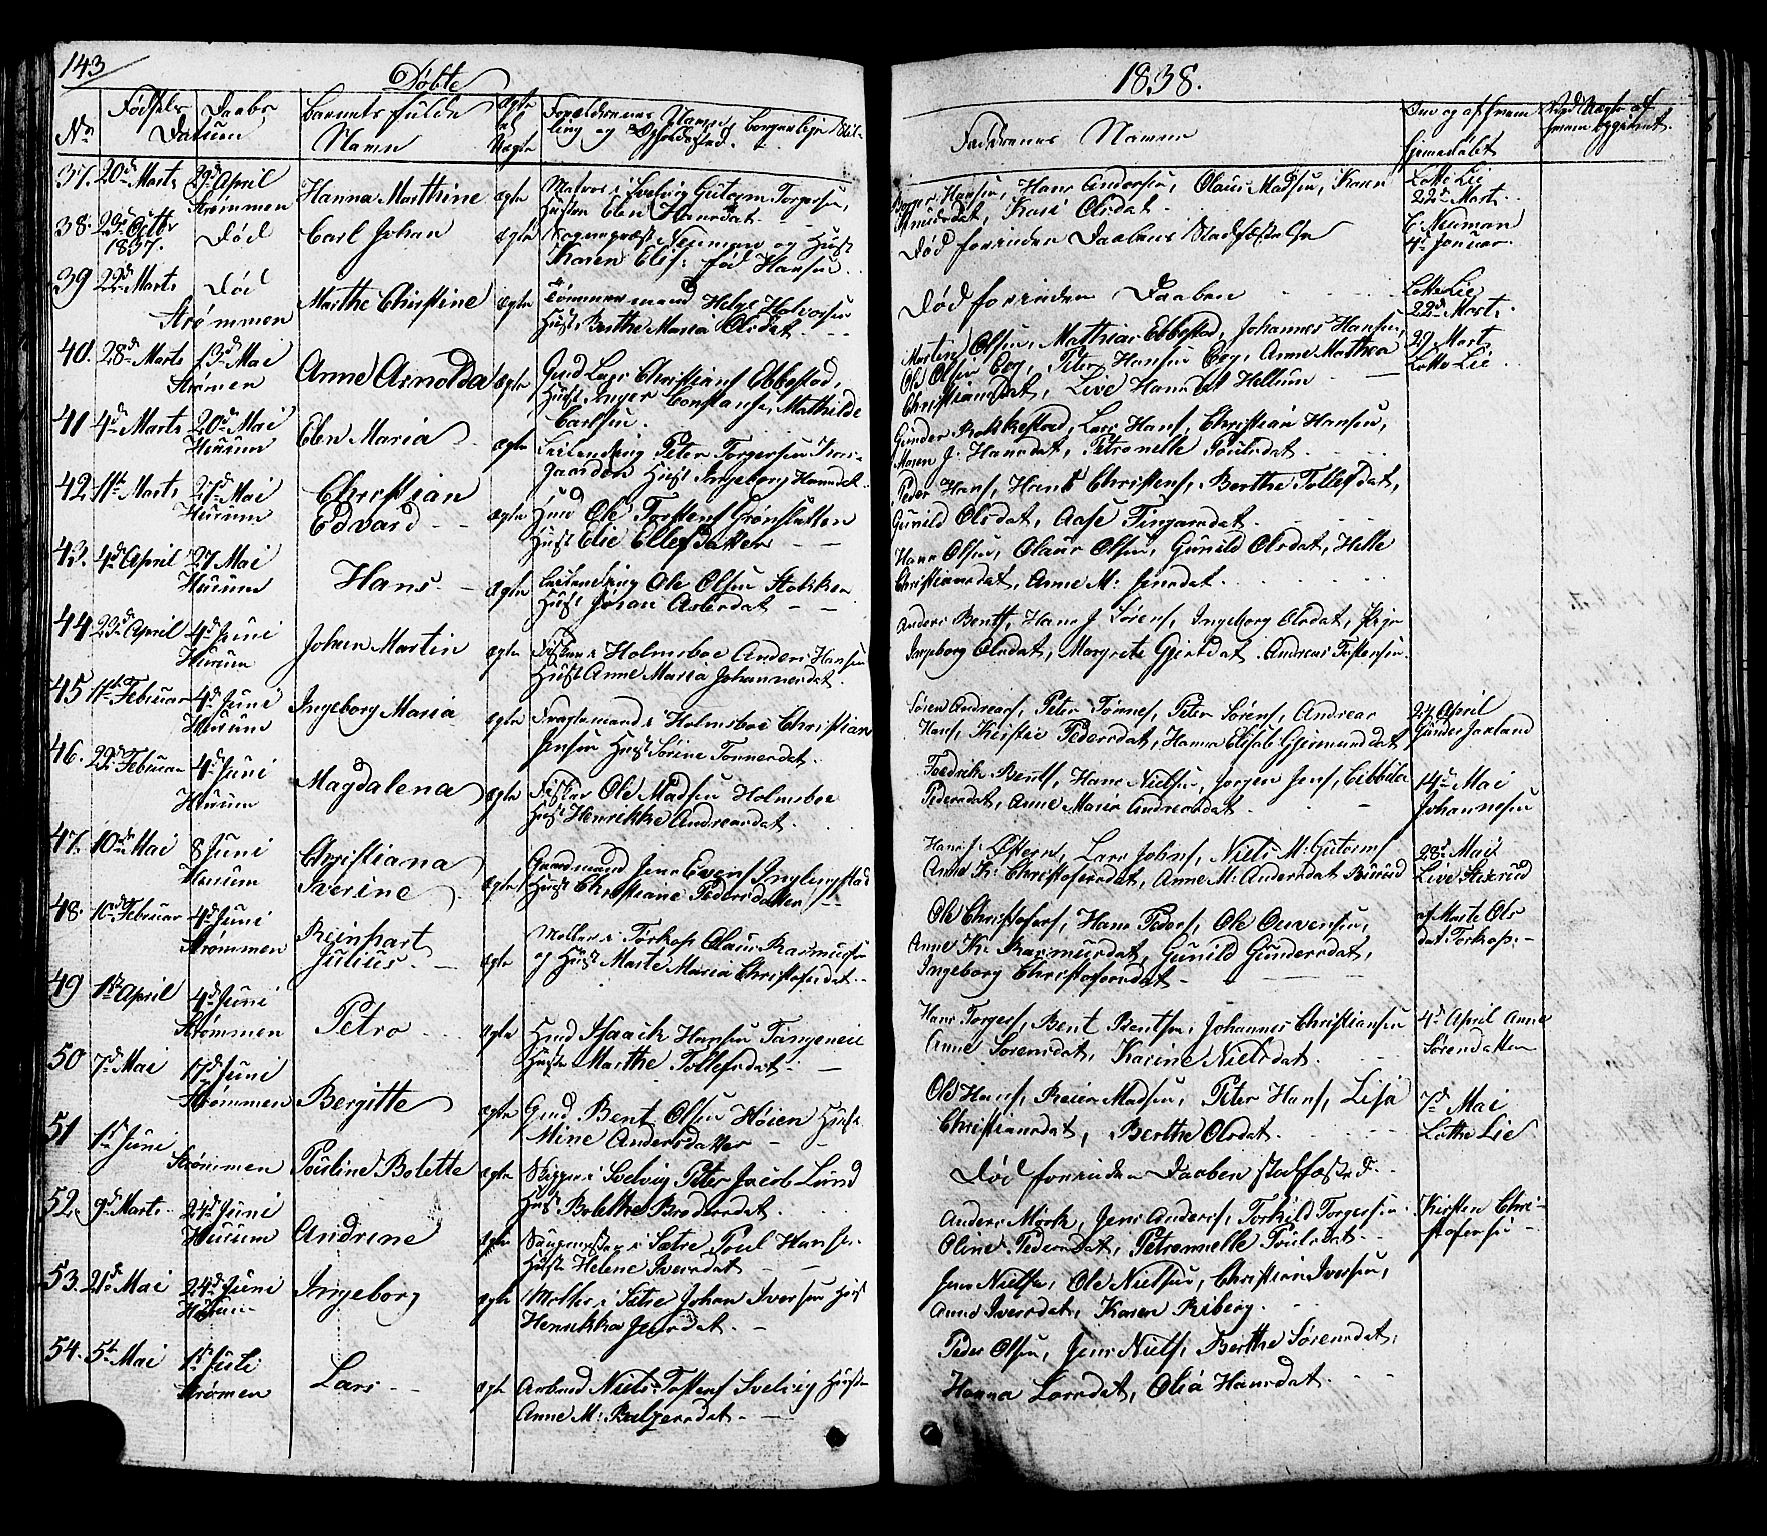 143
Døbte
1838.
No
Fødsels Daabs
Datum
Barnets fulde
Navn
ægte
el
Uægte
Forældrenes Navn, borgerlige Stil-
ling og Opholdssted.
Faddernes Navne
Naar og af hvem
hjemmedøbt
37. 20d Marts
29d April
Strømmen
Hanna Marthine
ægte
Matros i Svelvig Gutorm Torgersen,
Hustru Elen Hansdat.
Hansen, Hans Andersen, Olaus Madsen, Karen
Knudsdat, Kari Olsdat.
Lotte Lie
22d Marts.
38. 23d Octbr
1837.
Død
Carl Johan
ægte
Sogneprest Neuman og Hust
Karen Elis: fød Hansen
Død forinden Daabens Stadfæstelse
C Neuman
4d Januar.
39 22d Marts
Død
Strømmen
Marthe Christine
ægte
Tømmermand Helge Halvorsen
Hust Berthe Maria Olsdat.
Død forinden Daaben
Lotte Lie
22d Marts.
40. 28d Marts
13d Mai
Strømen
Anne Arnolda
ægte
Gmd Lars Christians Ebbestad,
Hust Inger Constanse Mathilde
Carlsen.
Martin Olsen, Mathias Ebbestad, Johannes Hansen,
Ole Olsen Bog, Peter Hansen Bog, Anne Mathea
Christiansdat, Live Hansdat Hellum
29 Marts
Lotte Lie
41 4d Marts
20d Mai
Hurum
Elen Maria
ægte
Leilending Peter Torgersen
gaarden Hust Ingeborg Hansdat.
Gunder Rotskestad, Lars Hans, Christian Hansen,
Maren J: Hansdat, Petronelle Poulsdat.
42. 11te Marts
21d Mai
Hurum
Christian
Edvard
ægte
Hmd Ole Torstens Grønsletten
Hust Elie Ellefsdatter
Peder Hans, Hans Christens, Berthe Tollefsdat,
Gunild Olsdat, Aase Tingarsdat.
43. 4d April
27 Mai
Hurum
Hans.
ægte
Leilending Ole Olsen Stokker
Hust Jøran Aslesdat
Hans Olsen, Olaus Olsen, Gunild Olsdat, Helle
Christiansdat, Anne M: Jensdat.
44. 23d April
4d Juni
Hurum
Johan Martin
ægte
Fisker i Holmsboe Anders Hansen
Hust Anne Maria Johannesdat.
Anders Bents, Hans J Sørens, Ingeborg Olsdat,
Ingeborg Olsdat, Margrete Gjertsdat. Andreas Torstensen.
45 11te Februar
4d Juni
Hurum
Ingeborg Maria
ægte
Fragtemand i Holmsboe Christian
Jensen Hust Sørine Tønnesdat.
Søren Andreas, Peter Tønnes, Peter Sørens, Andreas
Hans, Kirstie Pedersdat, Hanna Elisab Gjermundsdat
24 April
Gunder Jarland
46. 23d Februar
4d Juni
Hurum
Magdalena
ægte
Fisker Ole Madsen Holmsboe
Hust Henrikke Andreasdat.
Fredrik Bents, Hans Nielsen, Jørgen Jens, Cibbila
Pedersdat, Anne Maria Andreasdat.
14de Mai
Johannesen
47. 10de Mai
8 Juni
Hurum
Christiana
Severine
ægte
Gaardmand Jens Evens Inglingstad
Hust Christiane Pedersdatter
Hans J: Østern, Lars Johns, Niels M: Gutorms
Anne K: Christofersdat, Anne M: Andersdat Bürud
28d Mai
Live Stikrud
48. 10de Februar
4d Juni
Strømmen
Reinhart
Julius.
ægte
Møller i Tørkop Olaus Rasmusen
og Hust Marte Maria Christofersdat.
Ole Christofers, Hans Peders, Ole Ouvensen,
Anne K: Rasmusdat, Gunild Gundersdat,
Ingeborg Christofersdat.
af Marte Ols
dat Torkop.
49 1ste April
4d Juni
Strømmen
Petro
ægte
Hmd Isaack Hansen Tangeneie
Hust Marthe Tollefsdat.
Hans Torgers, Bent Bentsen, Johannes Christiansen
Anne Sørensdat, Karine Nielsdat.
4d April Anne
Sørendatter
50 7de Mai
17d Juni
Strømmen
Bergitte
ægte
Gmd Bent Olsen Høien Hust
Mine Andersdatter
Ole Hans, Reier Madsen, Peter Hans, Lisa
Christiansdat, Berthe Olsdat.
7de Mai
Lotte Lie
51 1ste Juni
Strømmen
Pouline Bolette
ægte
Skipper i Svelvig Peter Jacob Lund
Hust Bolethe Brodersdat.
Død forinden Daaben stadfæsted.
52. 9d Marts
24d Juni
Hurum
Andrine
ægte
Saugmester i Sætre Poul Hansen
Hust Helene Iversdat
Anders Mørk, Jens Anders, Torkild Torgersen
Oline Pedersdat, Petronnelle Poulsdat.
Kirsten Chri-
stofersen
53. 21de Mai
24d Juni
Hurum
Ingeborg
ægte
Møller i Sætre Johan Iversen Hust
Henrikka Jensdat.
Jens Nielsen, Ole Nielsen, Christian Iversen,
Anne Iversdat, Karen Riberg.
54. 5te Mai
1ste Juli
Strømen
Lars
ægte
Arbmd Niels Tostens Svelvig Hust
Anne M: Balzersdat.
Peder Olsen, Jens Niels, Berthe Sørensdat,
Hanna Larsdat, Olia Hansdat.